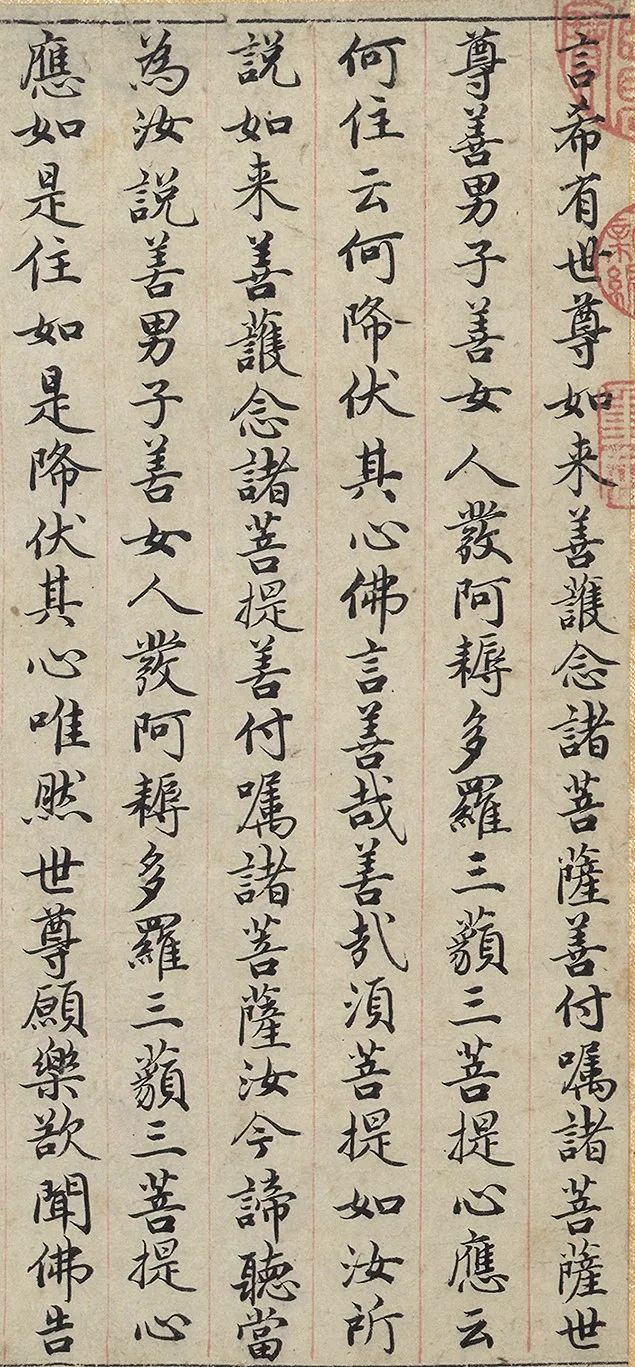 言希有世尊如来善護念諸菩薩善付嘱諸菩薩世
尊善男子善女人發阿耨多羅三藐三菩提心應云
何住云何降伏其心佛言善哉善哉須菩提如汝所
説如来善護念諸菩提善付嘱諸菩薩汝今諦聽當
為汝説善男子善女人發阿耨多羅三藐三菩提心
應如是住如是降伏其心唯然世尊願樂欲聞佛告